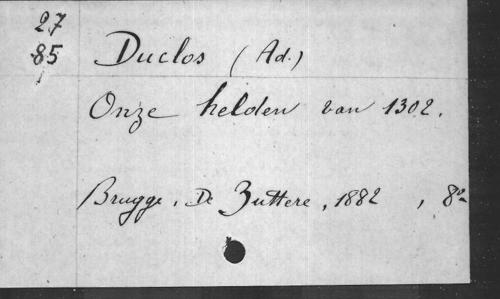 27
85 Duclos (Ad.)
Onze helden van 1302.
Brugge, De Zuttere, 1882 , 8°